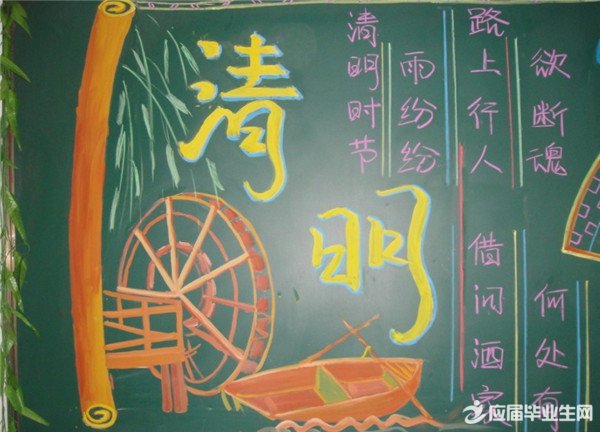 清明
清明时节
雨纷纷
路上行人
欲断魂
借问酒家
何处有
应届毕业生网